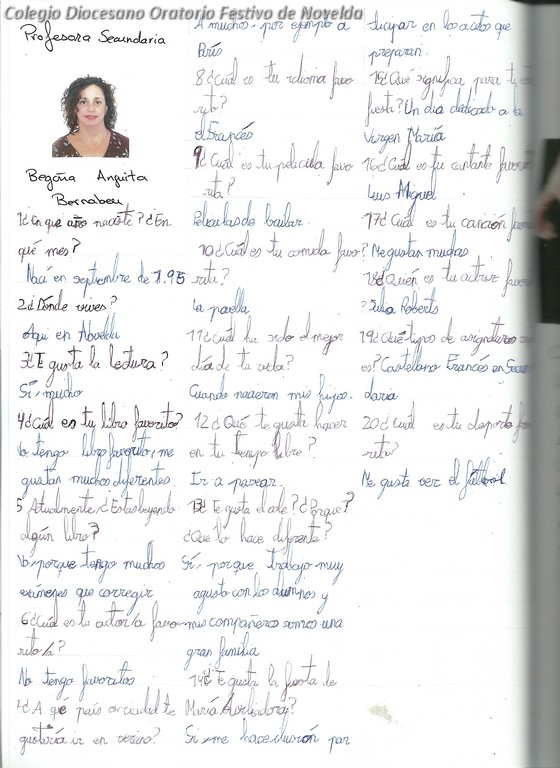 Colegio Diocesano Oratorio Festivo de Novelda
Profesora Secundaria
Begoña Anguita
Bernabeu
1¿En que año naciste? ¿En
qué mes?
Nací en septiembre de 1.975
2¿Dónde vives?
Aqui en Novelda
3¿Te gusta la lectura?
Sí, mucho
4¿Cuál es tu libro favorito?
No tengo libro favorito, me
gustan muchos diferentes.
5 Atualmente, ¿Estas leyendo
algún libro?
No, porque tengo muchos
exámenes que corregir
6¿Cuál es tu actor/a favo-
rito/a?
No tengo favoritos
7¿A qué país o ciudad te
gustaría ir en verano?
A muchos, por ejemplo a
París
8¿Cuál es tu idioma favo
rito?
el Francés
9¿Cuál es tu película favo
rita?
Películas de bailar.
10¿Cuál es tu comida favo
rita?
La paella
11¿Cuál ha sido el mejor
día de tu vida?
Cuando nacieron mis hijos.
12 ¿Qué te gusta hacer
en tu tiempo libre?
Ir a pasear.
13¿Te gusta el cole? ¿Porque?
¿Que lo hace diferente?
Sí, porque trabajo muy
agusto con los alumnos y
mis compañeros somos una
gran familia
14¿Te gusta la fiesta de
María Auxiliadora?
Si, me hace ilusión par
ticipar en los actos que
preparan.
15¿Qué significa para ti
fiesta? Un día dedicado a la
Virgen María
16¿Cuál es tu cantante favorit
Luis Miguel
17¿Cuál es tu canción favor
? Me gustan muchas
18¿Quién es tu actriz favor
? Julia Roberts
19¿Qué tipos de asignaturas
es? Castellano Francés en Secun
daria
20¿Cuál es tu deporte favo
rito?
Me gusta ver el fútbol